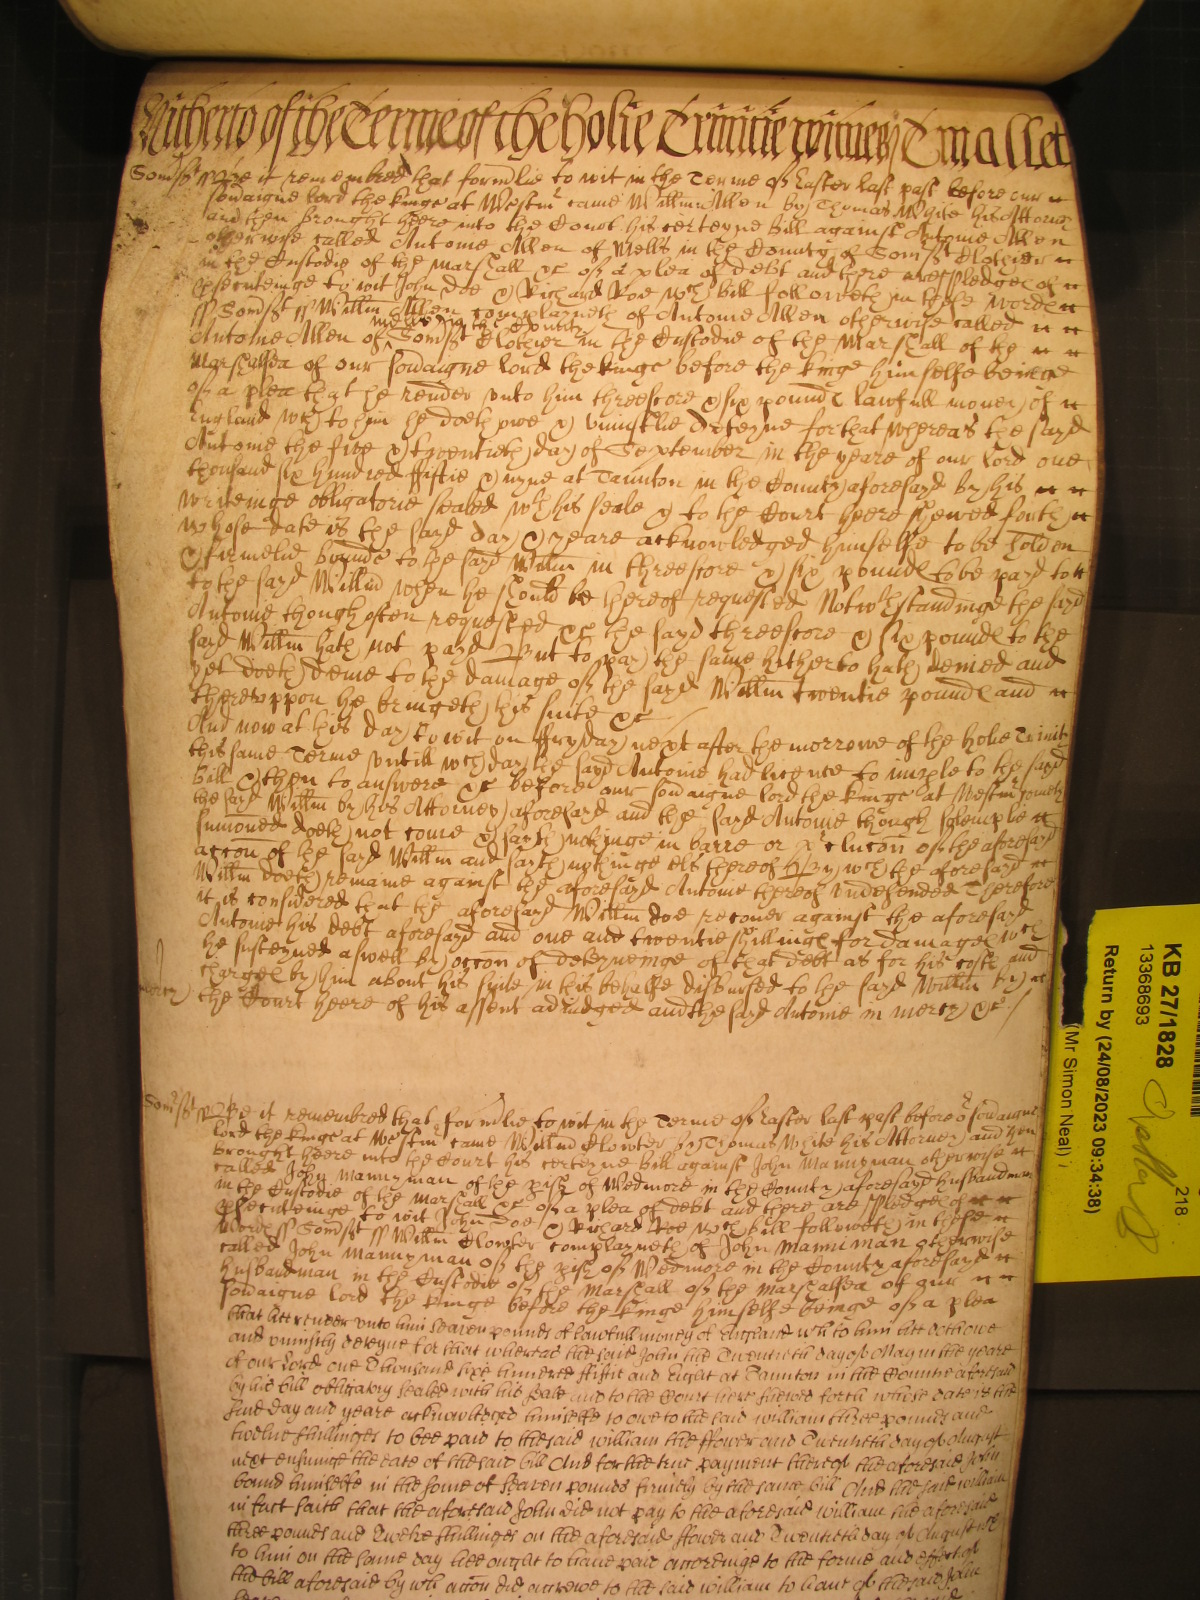 Hitherto of the Terme of the holie Trinitie witnes T Mallet
Som̃st ss Be it remembred that formlie to wit in the Terme of Easter last past before our
soṽaigne lord the kinge at Westm̃ came Willm̃ Allen by Thomas White his Attorney
and then brought heere into the Court his certeyne bill against Antonie Allen
otherwise called Antonie Allen of Wells in the County of Som̃st Clothier
in the Custodie of the Marshall &c of a plea of debt and there are pledges of
p̱secuteinge to wit John Doe & Richard Roe wch bill followeth in these wordes
ss Som̃st ss Willm̃ Allen complayneth of Antonie Allen otherwise called
Antonie Allen of Wells in the County
Som̃st Clothier in the Custodie of the Marshall of the
Marshalsea of our soṽaigne lord the kinge before the kinge himselfe beinge
of a plea that he render unto him threescore & six pounds lawfull money of
England wch to him he doeth owe & uniustlie deteyne for that whereas the sayd
Antonie the five & twentieth day of September in the yeare of our lord one
thousand six hundred fiftie & nyne at Taunton in the County aforesayd by his
writeinge obligatorie sealed wth his seale & to the Court heere shewed forth
whose date is the sayd day & yeare acknowledged himselfe to be holden
& firmelie bound to the sayd Willm̃ in threescore & six pounds to be payd to
to the sayd Willm̃ when he should be thereof requested Notwthstandinge the sayd
Antonie though often requested &c the sayd threescore & six pounds to the
sayd Willm̃ hath not payd But to pay the same hitherto hath denied and
yet doeth denie to the damage of the sayd Willm̃ twentie pounds and
thereuppon he bringeth his suite &c
And now at this day to wit on ffryday next after the morrowe of the holie Trinity
this same Terme untill wch day the sayd Antonie had licence to imple to the sayd
bill & then to answere &c before our soṽaigne lord the kinge at Westm̃ cometh
the sayd Willm̃ by his Attorney aforesayd and the sayd Antonie though solemplie
sum̃oned doeth not come & sayth nothinge in barre or p̱clucõn of the aforesayd
acc̃on of the sayd Willm̃ and sayth nothinge els thereof By wch the aforesayd
Willm̃ doeth remaine against the aforesayd Antonie thereof undefended Therefore
it is considered that the aforesayd Willm̃ doe recover against the aforesayd
Antonie his debt aforesayd and one and twentie shillinges for damages wch
he susteyned aswell by occõn of deteyneinge of that debt as for his costs and
charges by him about his suite in this behalfe disbursed to the sayd Willm̃ by
mercy the Court heere of his assent adiudged and the sayd Antonie in mercy &c
Som̃st ss Be it remembred that formlie to wit in the Terme of Easter last past before or soṽaigne
lord the kinge at Westm̃ came Willm̃ Clowter by Thomas White his Attorney and then
brought heere into the Court his certeyne bill against John Mannyman otherwise
called John Mannyman of the pish of Wedmore in the County aforesayd husbandman
in the Custodie of the Marshall &c of a plea of debt and there are pledges of
p̱secuteinge to wit John Doe & Richard Roe wch bill followeth in these
wordes ss Som̃st ss Willm̃ Clowter complayneth of John Manniman otherwise
called John Mannyman of the pish of Wedmore in the County aforesayd
husbandman in the Custodie of the Marshall of the Marshalsea of our
soṽaigne lord the kinge before the kinge himselfe beinge of a plea
that hee render unto him seaven pounds of lawfull money of England wch to him hee doth owe
and uniustly deteyne for that whereas the said John the Twentieth day of May in the yeare
of our Lord one Thousand sixe hundred fiftie and Eight at Taunton in the Countie aforesaid
by his bill obligatory sealed with his seale and to the Court here shewed forth whose date is the
same day and yeare acknowledged himselfe to owe to the said william three pounds and
twelve shillinges to bee paid to the said william the ffower and Twentieth day of August
next ensuinge the date of the said bill And for the true payment thereof the aforesaid John
bound himselfe in the some of seaven pounds firmly by the same bill And the said william
in fact saith that the aforesaid John did not pay to the aforesaid william the aforesaid
three pounds and Twelve shillinges on the aforesaid ffower and Twentieth day of August wch
to him on the same day hee ought to have paid accordinge to the forme and effect of
the bill aforesaid by wch acc̃on did accrewe to the said william to have of the said John
KB 27/1828
13368693
218
Return by (24/08/2023 09:34:38)
(Mr Simon Neal)